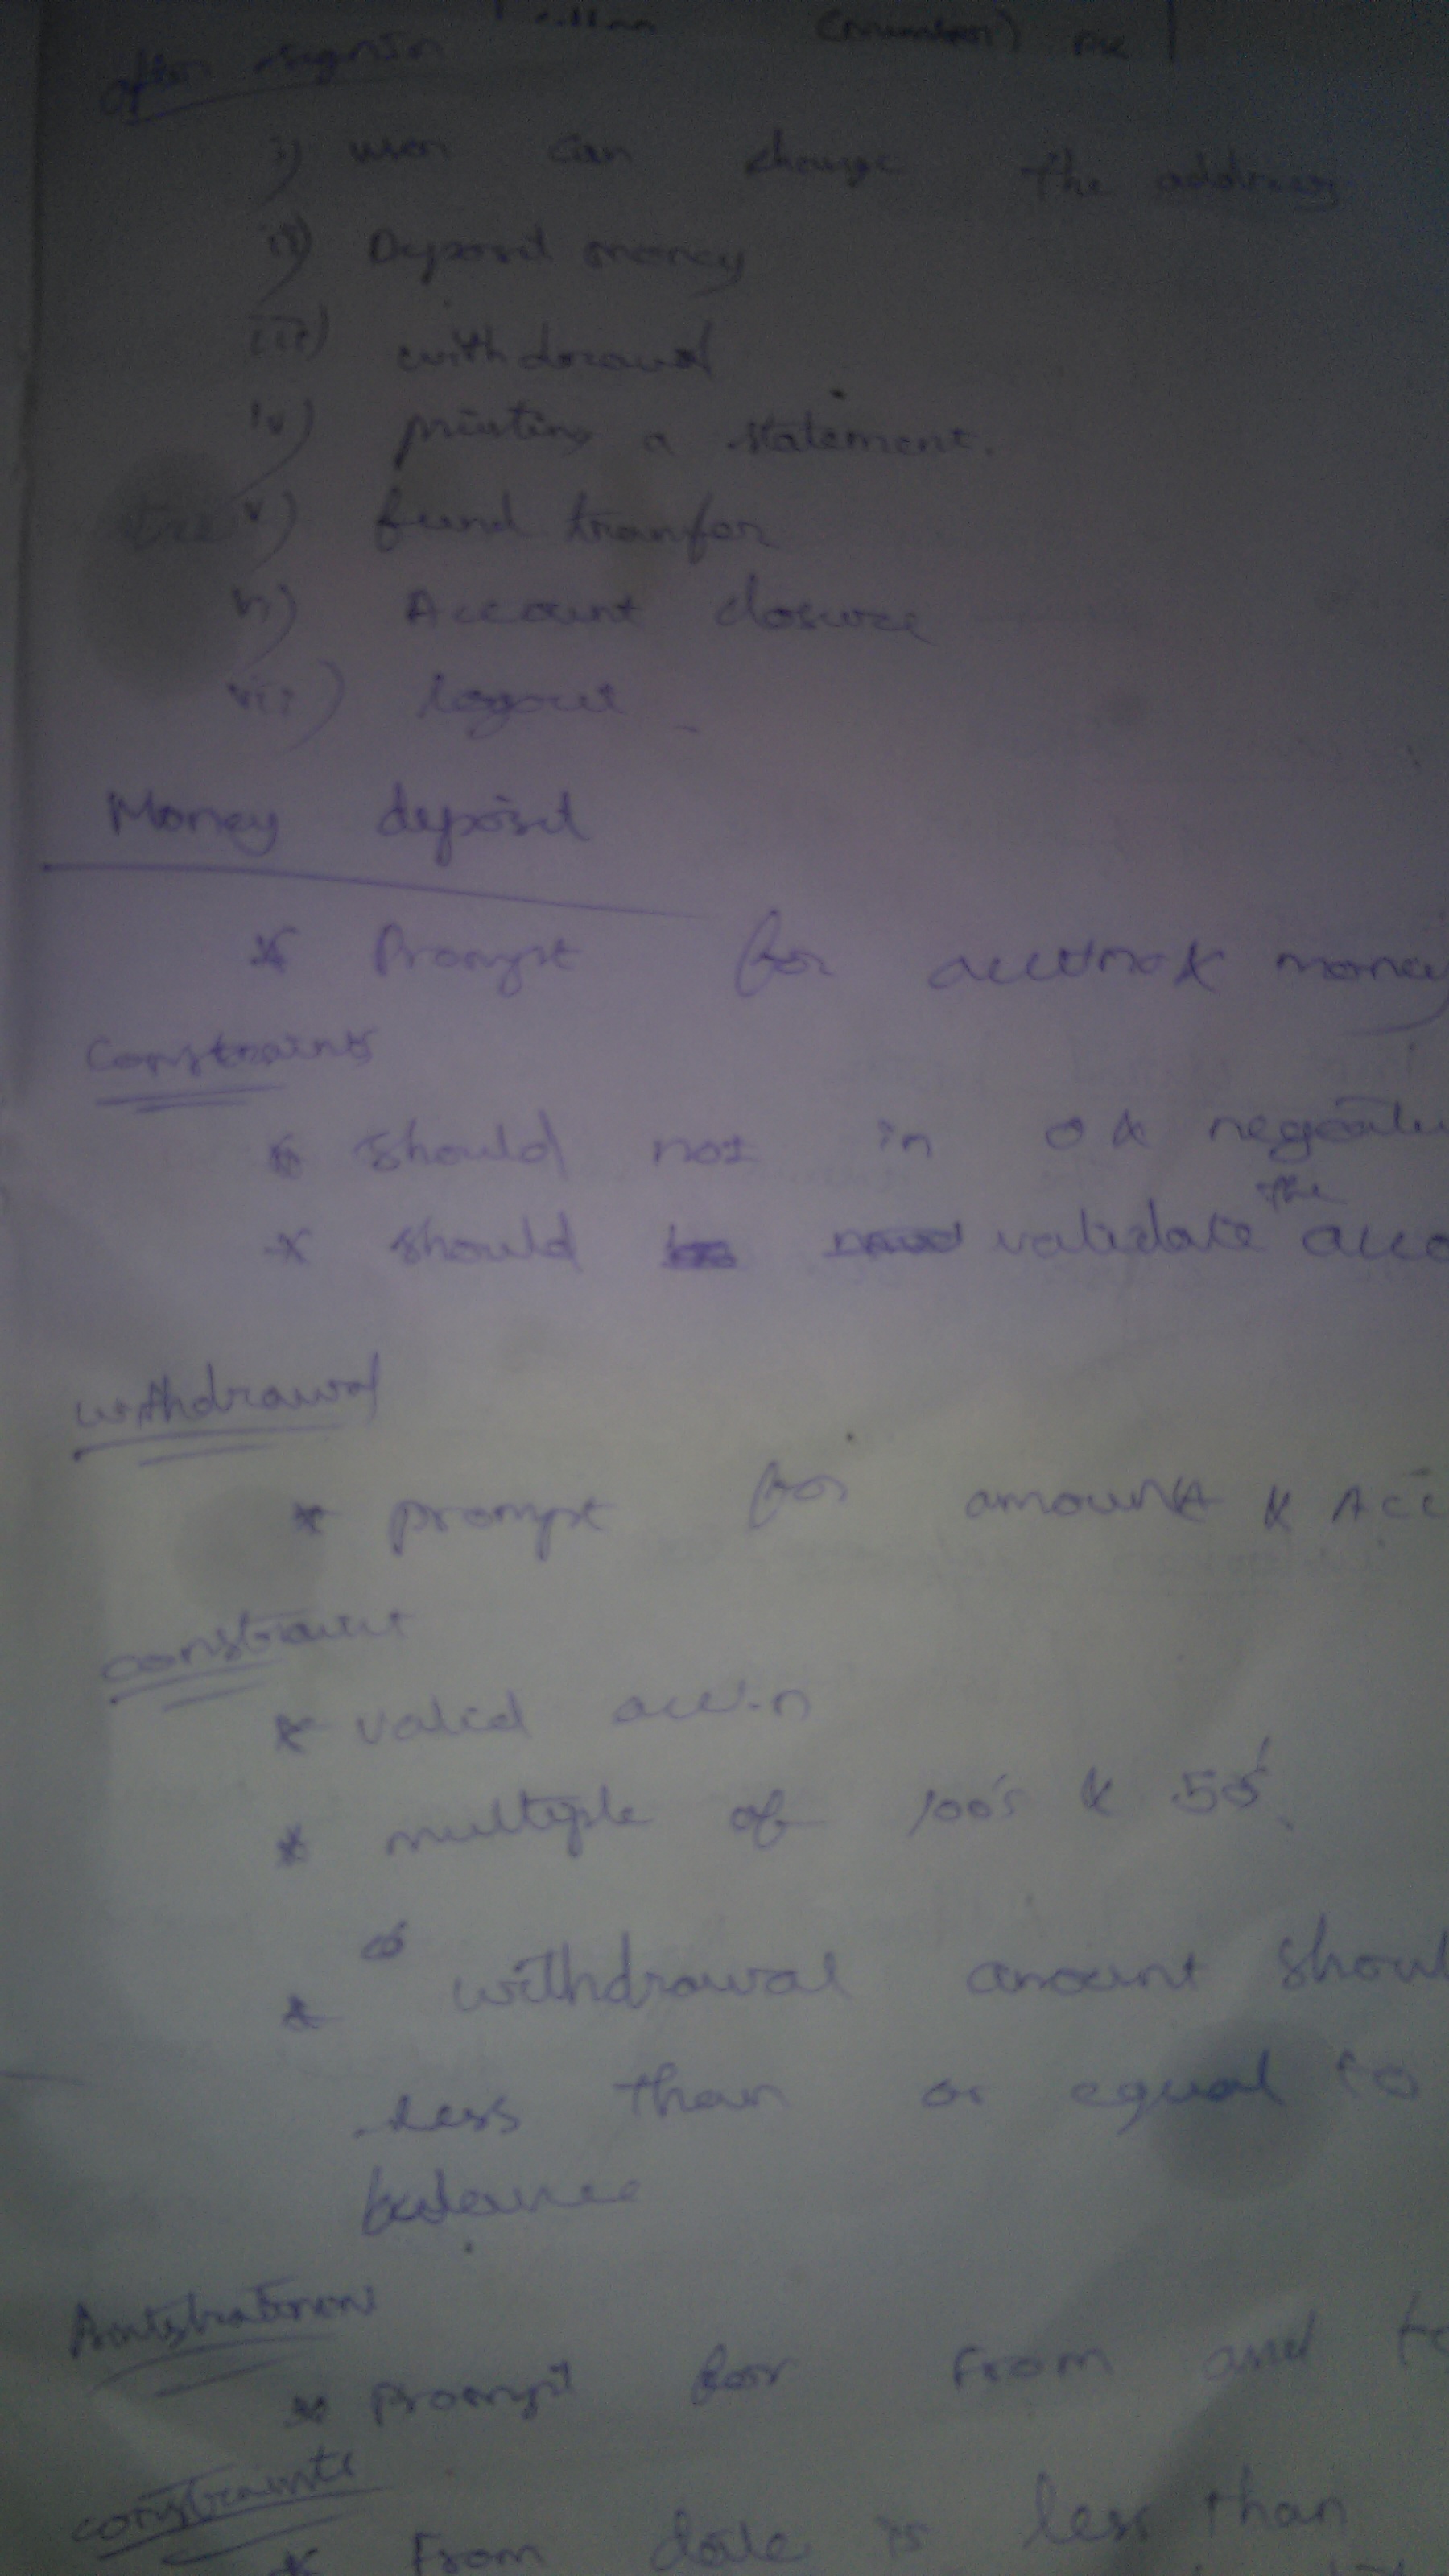 (number)
after signin
i) user can change the address
ii) Deposit money
iii) withdrawal
iv) printing a statement.
v) fund tranfer
vi) Account closure
vii) logout
Money deposit
* Prompt for money
Constraints
* should not in 0 &
* should validate the
withdrawal
* prompt for amount & Acc
constraint
* valid
* multiple of 100's & 50's
* withdrawal amount shoul
less than or equal to
balance
* prompt for From and
constraints
* From date is less than